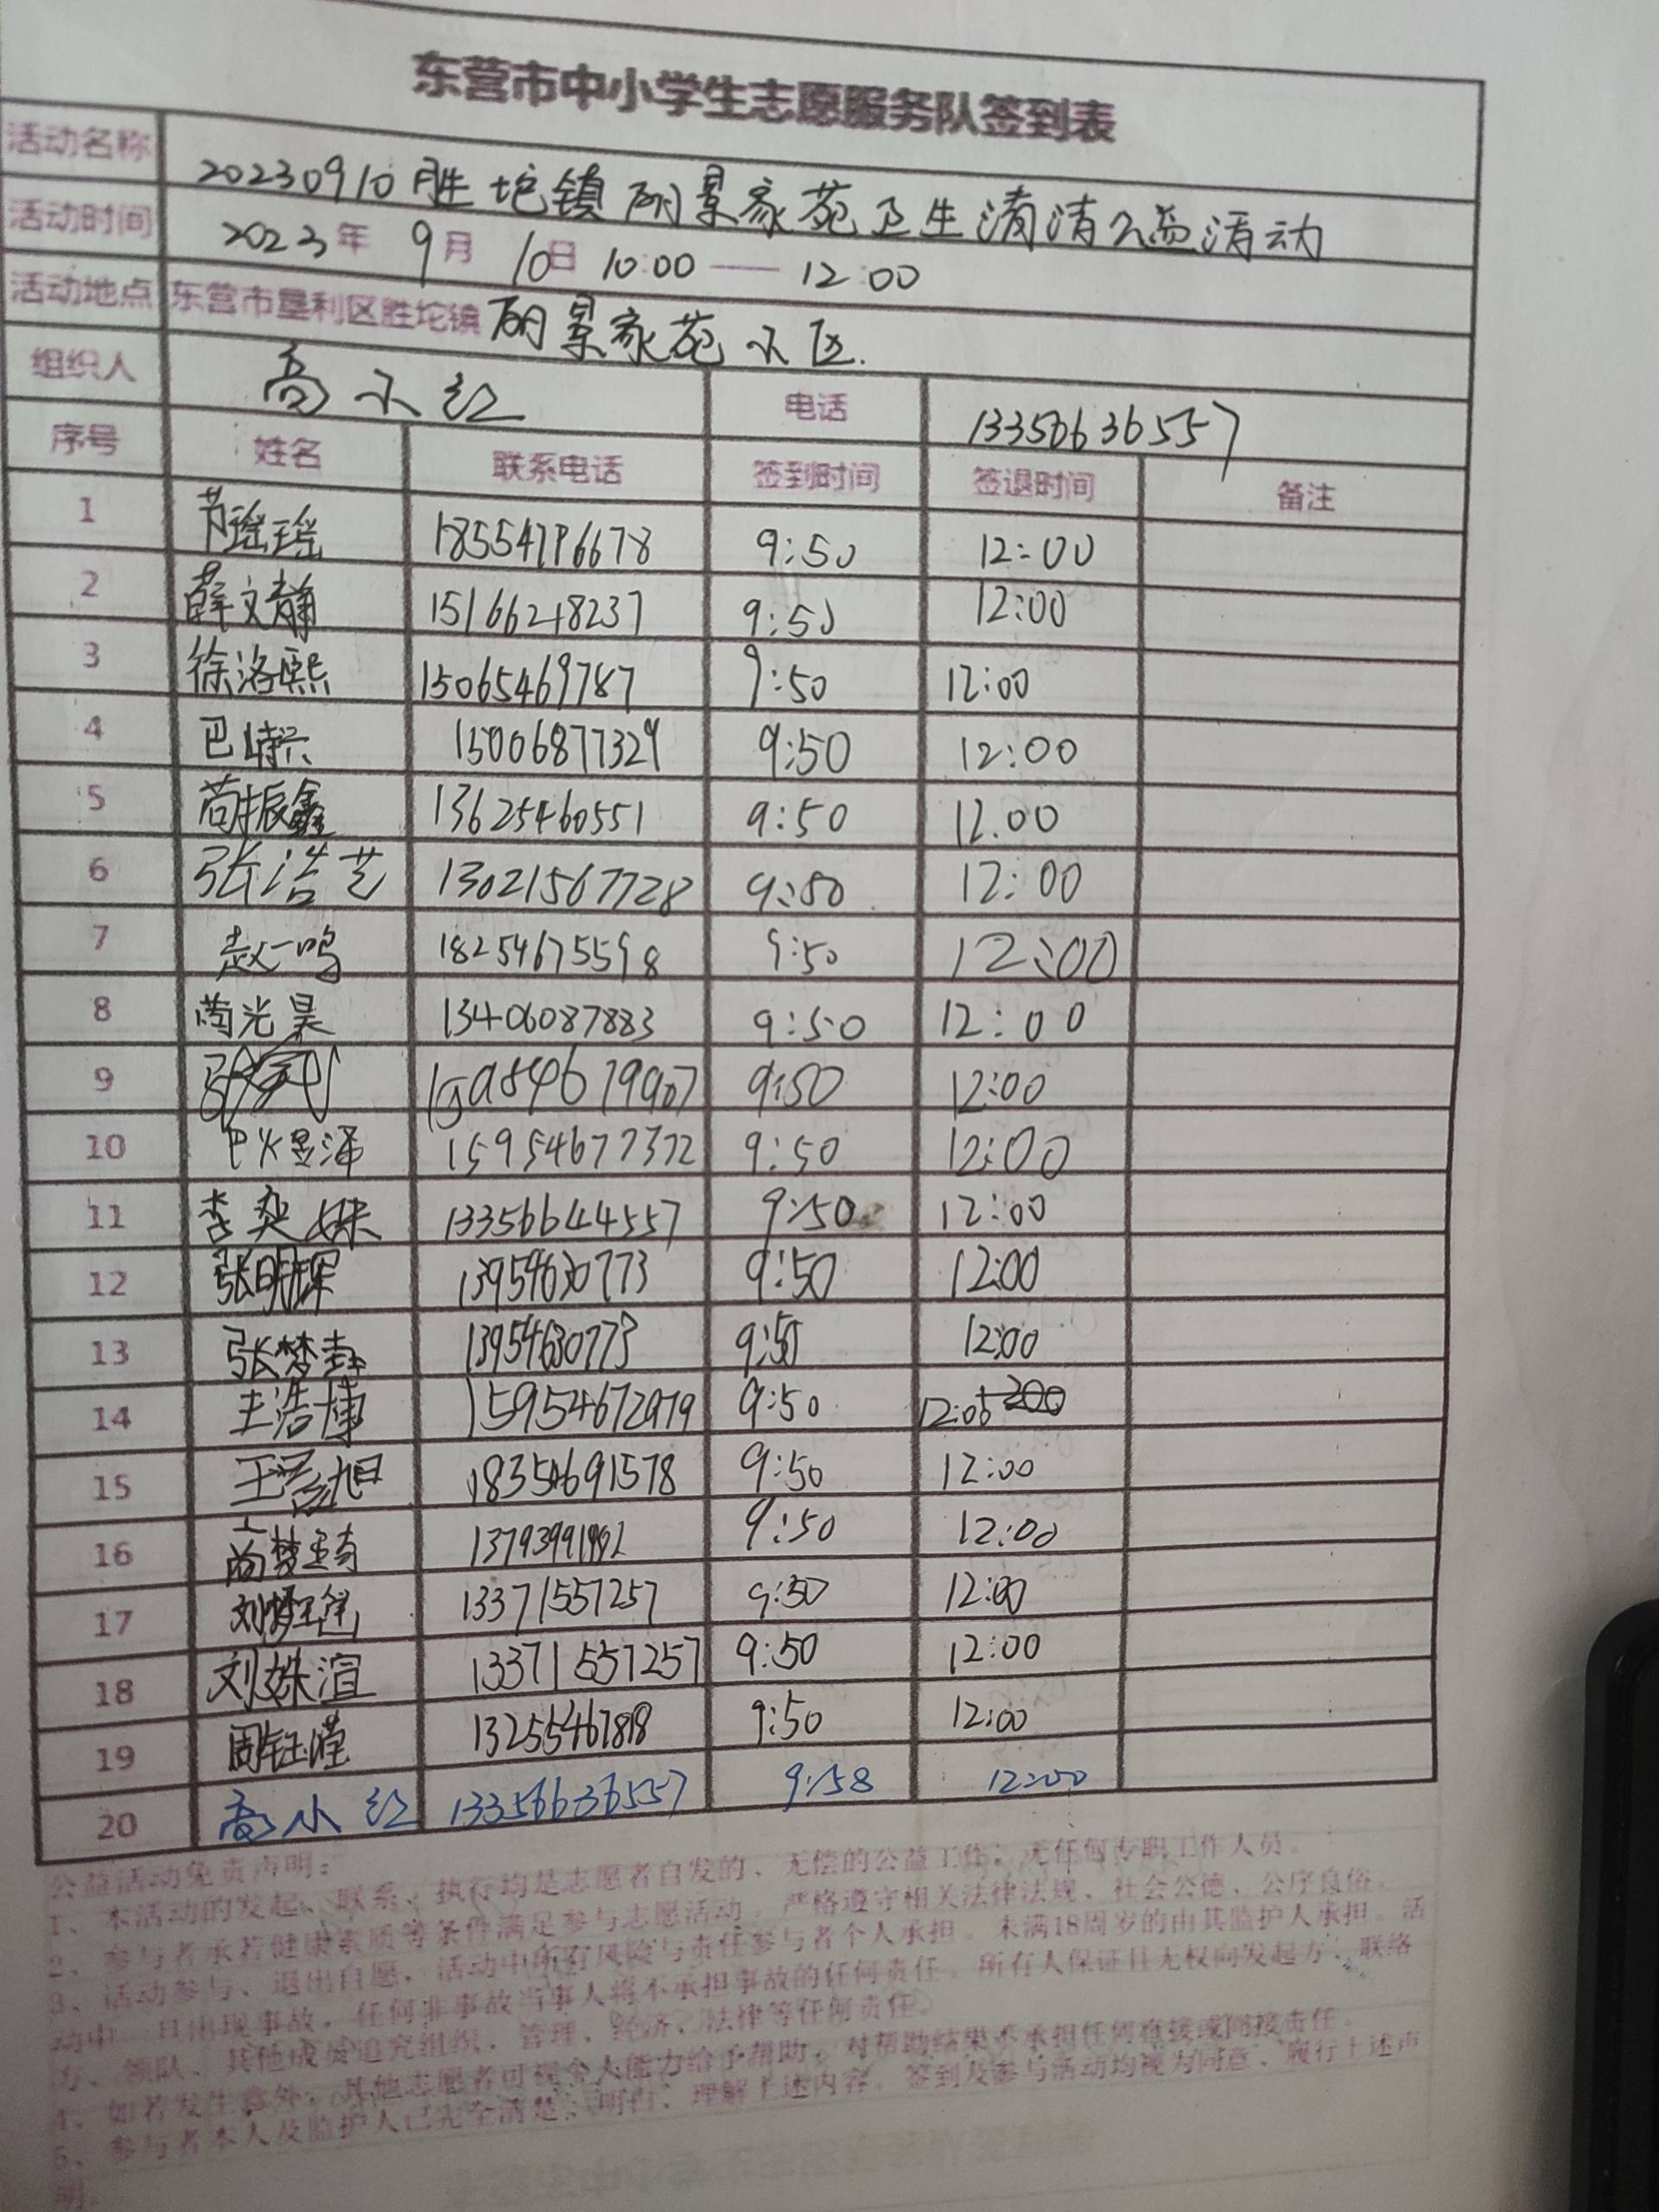 东营市中小学生志愿服务队签到表
活动名称 20230910胜坨镇丽景家苑卫生清洁公益活动
活动时间 2023年 9月 10日 10:00 — 12:00
活动地点 东营市垦利区胜坨镇 丽景家苑小区.
组织人 高小红 电话 13356636557
序号 姓名 联系电话 签到时间 签退时间 备注
1 瑶瑶 18554796678 9:50 12:00
2 薛文静 15166248237 9:50 12:00
3 徐洛熙 15065469787 9:50 12:00
4 巴 15006877329 9:50 12:00
5 苟振鑫 13625460551 9:50 12.00
6 张浩艺 13021567728 9:50 12:00
7 赵一鸣 18254675598 9:50 12:00
8 光昊 13406087883 9:50 12:00
9 9:50 12:00
10 巴煜泽 15954677372 9:50 12:00
11 李奕姝 13356644557 9:50 12:00
12 张明辉 13959630773 9:50 12:00
13 张梦 13954630773 9:50 12:00
14 王浩博 15954672979 9:50 12:05
15 王彦旭 18350691578 9:50 12:00
16 尚梦琦 9:50 12:00
17 刘梦 13371557257 9:50 12:00
18 刘姝渲 13371557257 9:50 12:00
19 周钰瑾 13255467818 9:50 12:00
20 高小红 13356636557 9:58 12:00
公益活动免责声明:
1、本活动的发起、联系、执行均是志愿者自发的、无偿的公益工作;无任何专职工作人员。
2、参与者承若健康素质等条件满足参与志愿活动。严格遵守相关法律法规、社会公德、公序良俗。
3、活动参与、退出自愿,活动中所有风险与责任参与者个人承担。未满18周岁的由其监护人承担。活
动中一旦出现事故,任何非事故当事人将不承担事故的任何责任。所有人保证且无权向发起方、联络
方、领队、其他成员追究组织、管理、经济、法律等任何责任。
4、如若发生意外,其他志愿者可视个人能力给予帮助,对帮助结果不承担任何直接或间接责任。
5、参与者本人及监护人已完全清楚、明白、理解上述内容。签到及参与活动均视为同意、履行上述声
明。